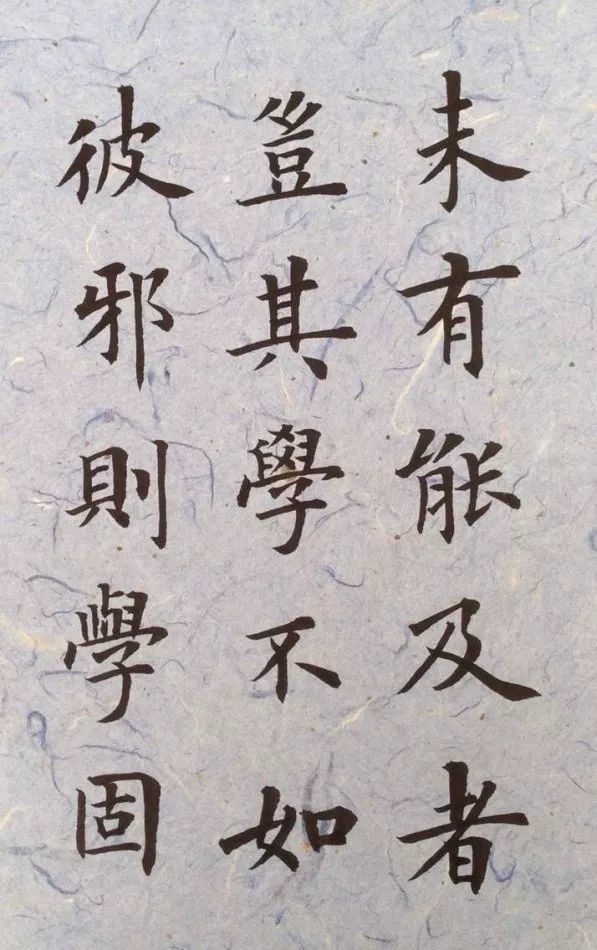 未有能及者
豈其學不如
彼邪則學固